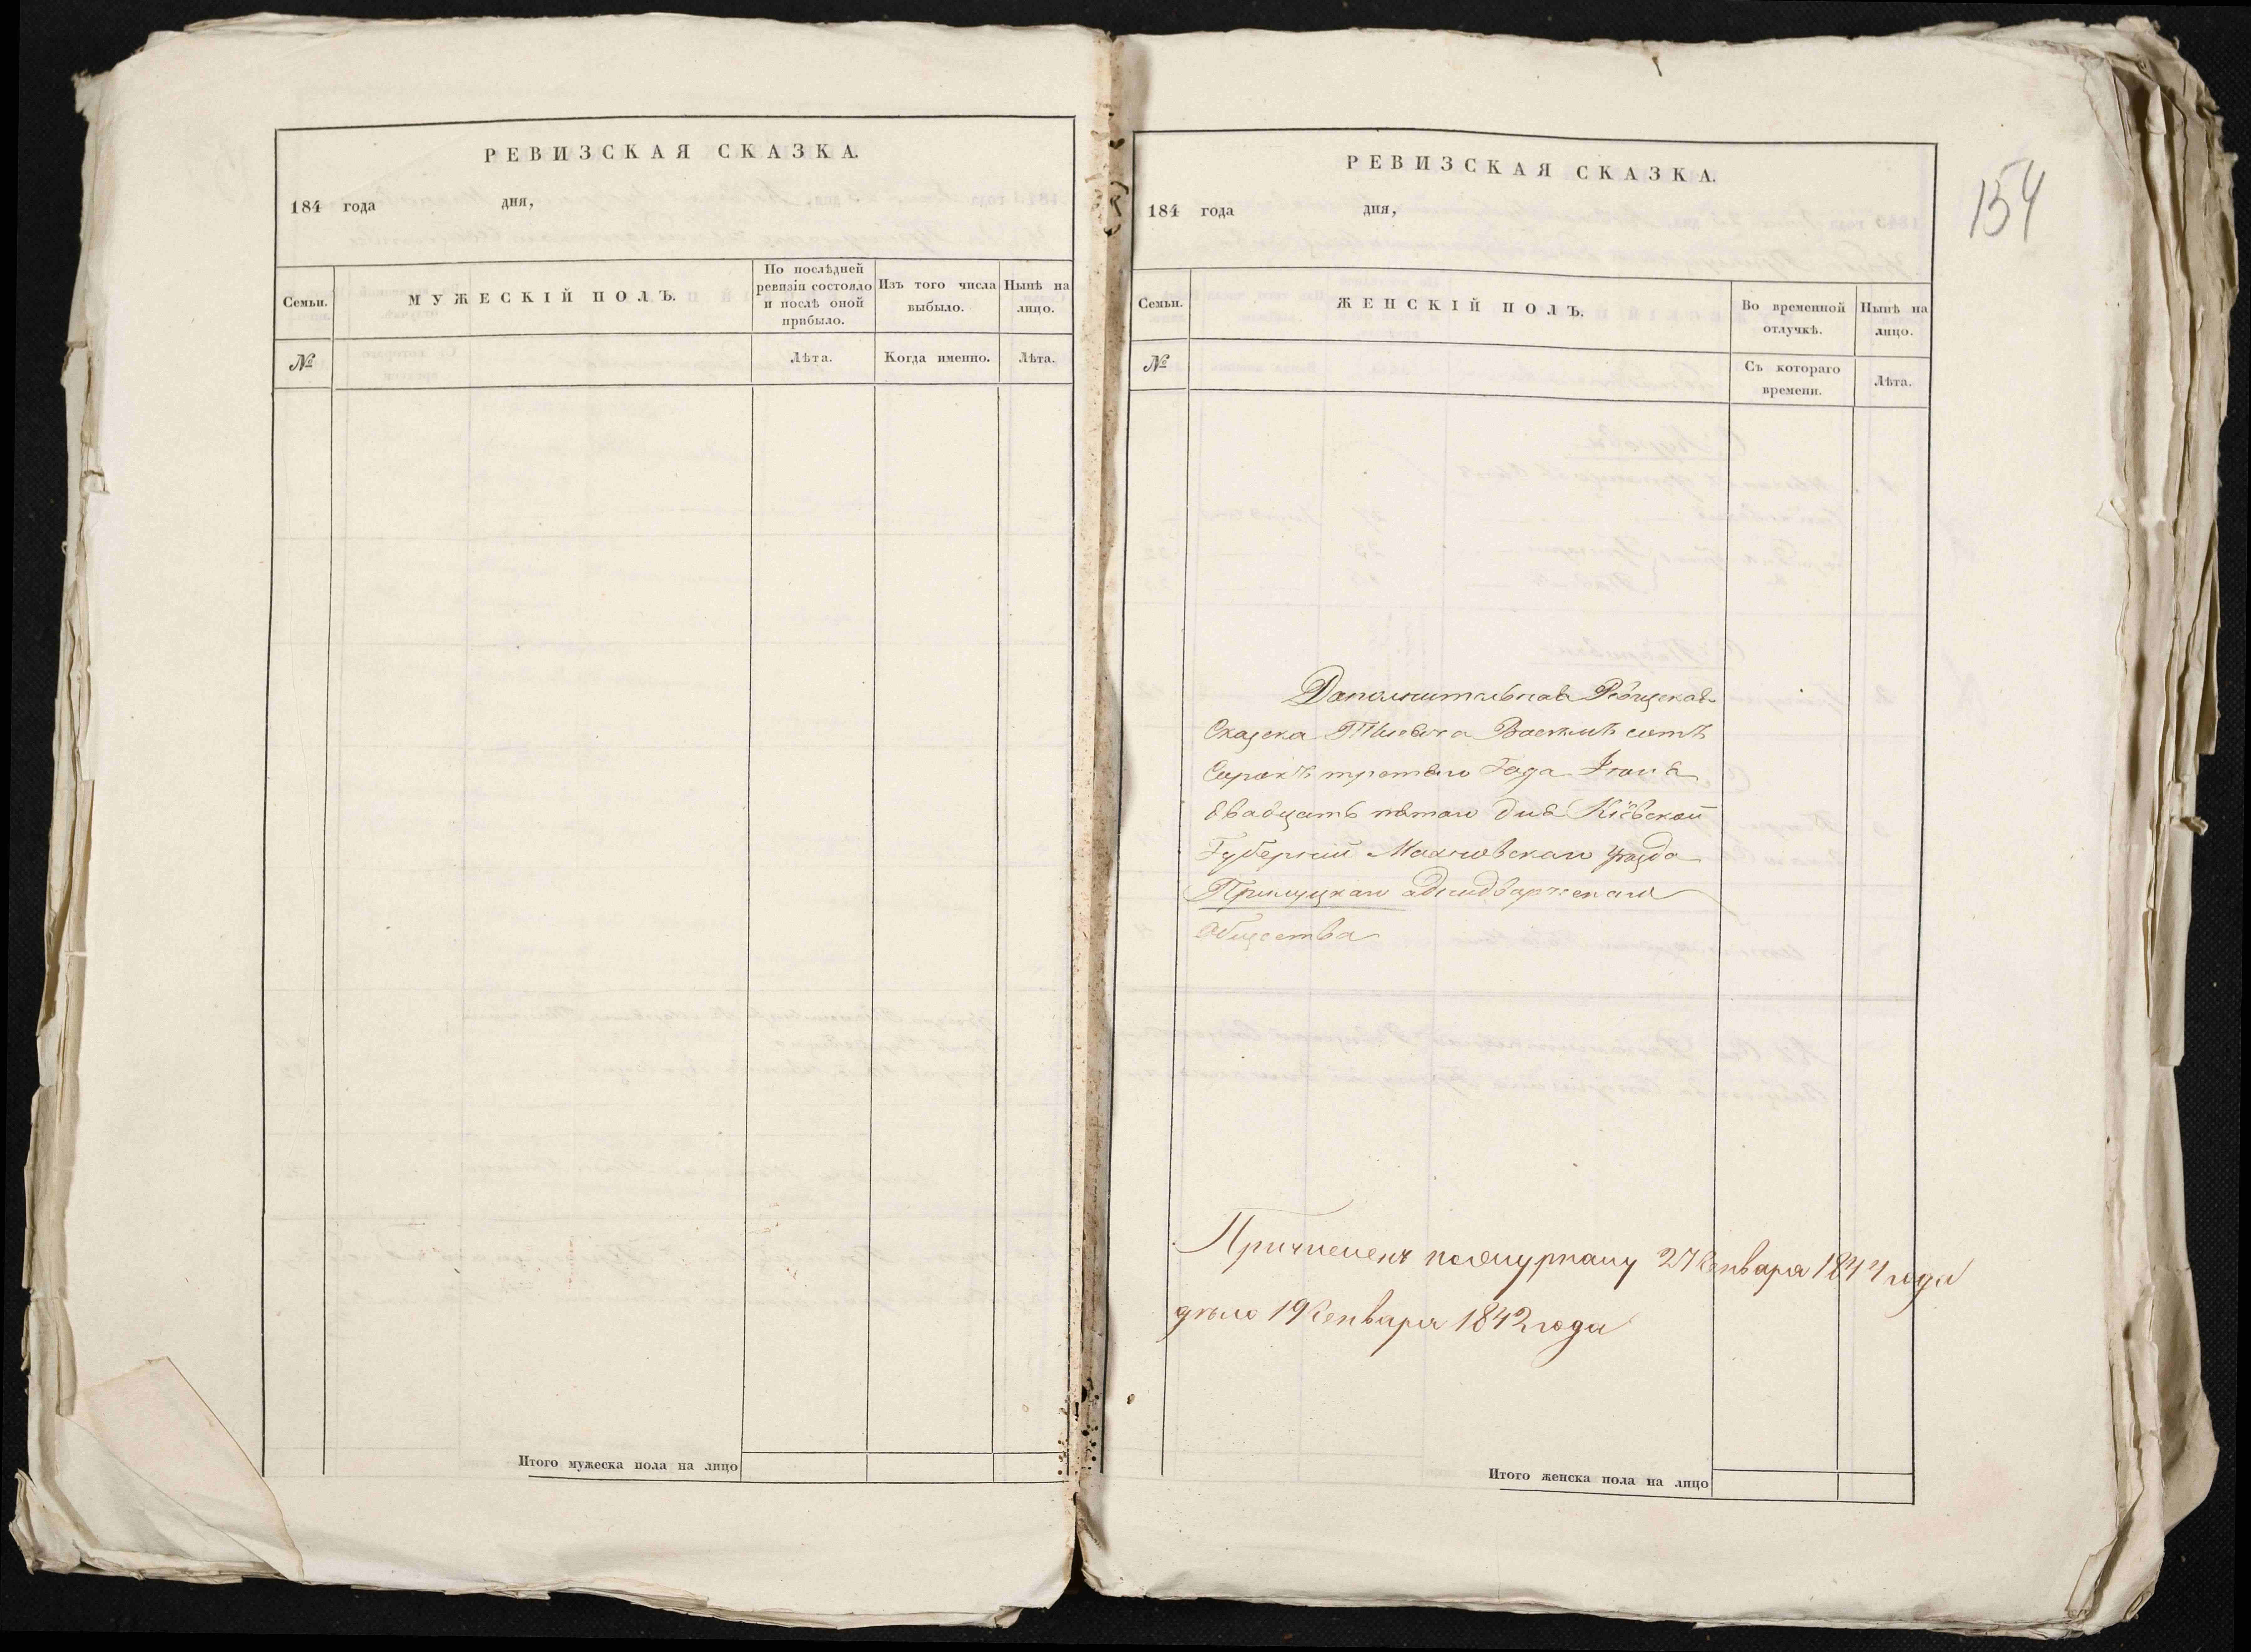 РЕВИЗСКАЯ СКАЗКА.
184 года дня,
Семьи.
МУЖЕСКІЙ ПОЛЪ.
По послѣдней ревизіи состояло и послѣ оной прибыло.
Изъ того числа выбыло.
Нынѣ на лицо.
№
Лѣта.
Когда именно.
Лѣта.
Итого мужеска пола на лицо
154
РЕВИЗСКАЯ СКАЗКА.
184 года дня,
Семьи.
ЖЕНСКІЙ ПОЛЪ.
Во временной отлучкѣ.
Нынѣ на лицо.
№
Съ котораго времени.
Лѣта.
Дополнительная Ревизская
Сказка Тысеча Восемъ сотъ
Сорокъ третьяго Года Іюня
двадцать пятаго дня Кіевской
Губерніи Махновскаго уѣзда
Прилуцкаго аднадворческаго
общества
Причисленъ по журналу 27 Генваря 1844 года
дѣло 19 Генваря 1842 года
Итого женска пола на лицо